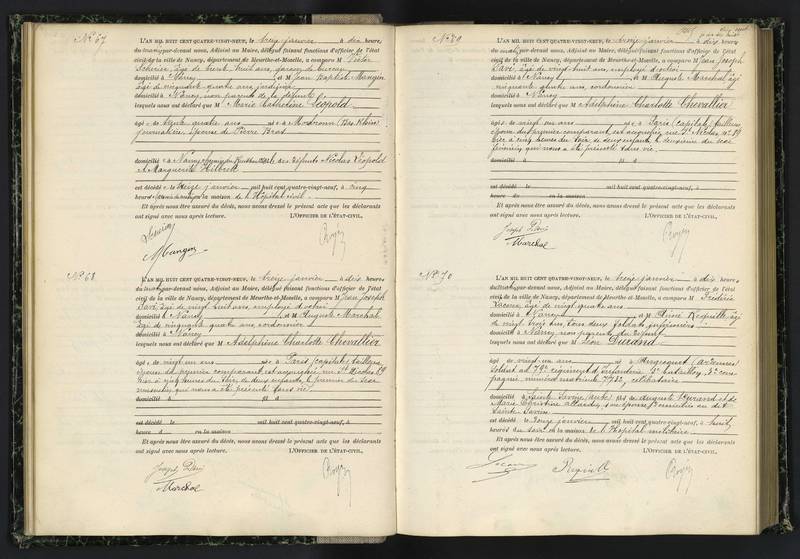 N° 67
L'AN MIL HUIT CENT QUATRE-VINGT-NEUF, le treize janvier à dix heures
du matin par-devant nous, Adjoint au Maire, délégué faisant fonctions d'officier de l'état
civil de la ville de Nancy, département de Meurthe-et-Moselle, a comparu M Victor
âgé de trente huit ans, garçon de bureau
domicilié à Nancy et M Jean Baptiste Mangin
âgé de cinquante quatre ans, jardinier
domicilié à Nancy, non parents de la défunte
lesquels nous ont déclaré que M Marie Catherine Léopold
âgé e de trente quatre ans née à Morsbronn (Bas Rhin)
journalière, épouse de Pierre Bras
domicilié e à Nancy, fille des défunts Nicolas Léopold
et Marguerite
est décédé e le treize janvier mil huit cent quatre-vingt-neuf, à cinq
heures du matin en la maison de l'Hôpital civil
Et après nous être assuré du décès, nous avons dressé le présent acte que les déclarants
ont signé avec nous après lecture. L'OFFICIER DE L'ÉTAT-CIVIL,
Mangin
N° 68
L'AN MIL HUIT CENT QUATRE-VINGT-NEUF, le treize janvier à dix heures
du matin par-devant nous, Adjoint au Maire, délégué faisant fonctions d'officier de l'état
civil de la ville de Nancy, département de Meurthe-et-Moselle, a comparu M Jean Joseph
âgé de vingt huit ans, employé d'octroi
domicilié à Nancy et M Auguste Marchal
âgé de cinquante quatre ans, cordonnier
domicilié à Nancy
lesquels nous ont déclaré que M Adelphine Charlotte Chevallier
âgé e de vingt un ans née à Paris (capitale) tailleuse
épouse du premier comparant, est accouchée, rue St Nicolas 19
hier à cinq heures du soir de deux enfants, le premier du sexe
masculin qui nous a été présenté sans vie
domicilié à et à
est décédé le mil huit cent quatre-vingt-neuf, à
heures en la maison
Et après nous être assuré du décès, nous avons dressé le présent acte que les déclarants
ont signé avec nous après lecture. L'OFFICIER DE L'ÉTAT-CIVIL,
Joseph
Marchal
N° 69
L'AN MIL HUIT CENT QUATRE-VINGT-NEUF, le treize janvier à dix heures
du matin par-devant nous, Adjoint au Maire, délégué faisant fonctions d'officier de l'état
civil de la ville de Nancy, département de Meurthe-et-Moselle, a comparu M Jean Joseph
âgé de vingt huit ans, employé d'octroi
domicilié à Nancy et M Auguste Marchal âgé
cinquante quatre ans, cordonnier
domicilié à Nancy
lesquels nous ont déclaré que M Adelphine Charlotte Chevallier
âgé e de vingt un ans née à Paris (capitale) tailleuse
épouse du premier comparant, est accouchée rue St Nicolas n° 19
hier à cinq heures du soir, de deux enfants, le deuxième du sexe
féminin, qui nous a été présenté sans vie
domicilié à et à
est décédé le mil huit cent quatre-vingt-neuf, à
heures du en la maison
Et après nous être assuré du décès, nous avons dressé le présent acte que les déclarants
ont signé avec nous après lecture. L'OFFICIER DE L'ÉTAT-CIVIL,
Joseph
Marchal
N° 70
L'AN MIL HUIT CENT QUATRE-VINGT-NEUF, le treize janvier à dix heures
du matin par-devant nous, Adjoint au Maire, délégué faisant fonctions d'officier de l'état
civil de la ville de Nancy, département de Meurthe-et-Moselle, a comparu M Frédéric
âgé de vingt quatre ans
domicilié à Nancy et M Aimé âgé
de vingt trois ans, tous deux soldats infirmiers
domicilié à Nancy, non parents du défunt
lesquels nous ont déclaré que M Léon Durand
âgé de vingt un ans né à (Ardennes)
soldat au 79e régiment d'Infanterie, 2e bataillon, 3e compagnie
numéro matricule 7732, célibataire
domicilié à Sainte Savine (Aube) fils de Auguste Durand et de
Marie Christine son épouse, domiciliés au dit
Sainte Savine
est décédé le douze janvier mil huit cent quatre-vingt-neuf, à huit
heures du soir en la maison de l'Hôpital militaire
Et après nous être assuré du décès, nous avons dressé le présent acte que les déclarants
ont signé avec nous après lecture. L'OFFICIER DE L'ÉTAT-CIVIL,